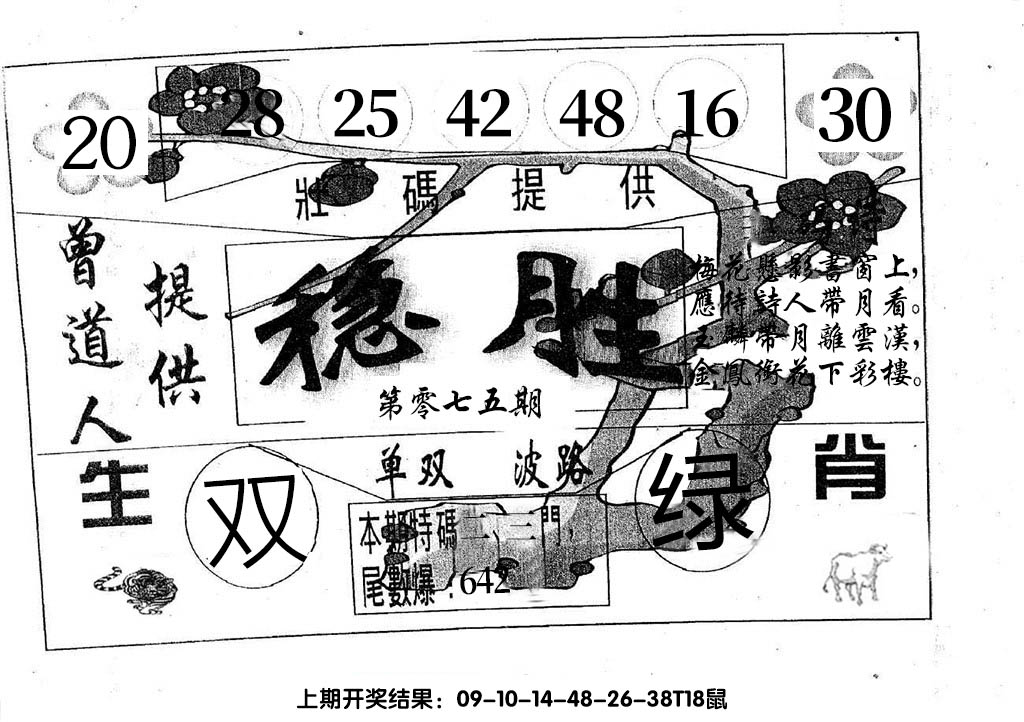 20 28 25 42 48 16 30
壯碼提供
曾道人
提供
稳胜
第零七五期
梅花懸影書窗上，
應待詩人帶月看。
玉麟帶月離雲漢，
金鳳銜花下彩樓。
单双 波路
生肖
双
绿
本期特碼二、三門，
尾數爆：642
上期开奖结果：09-10-14-48-26-38T18鼠